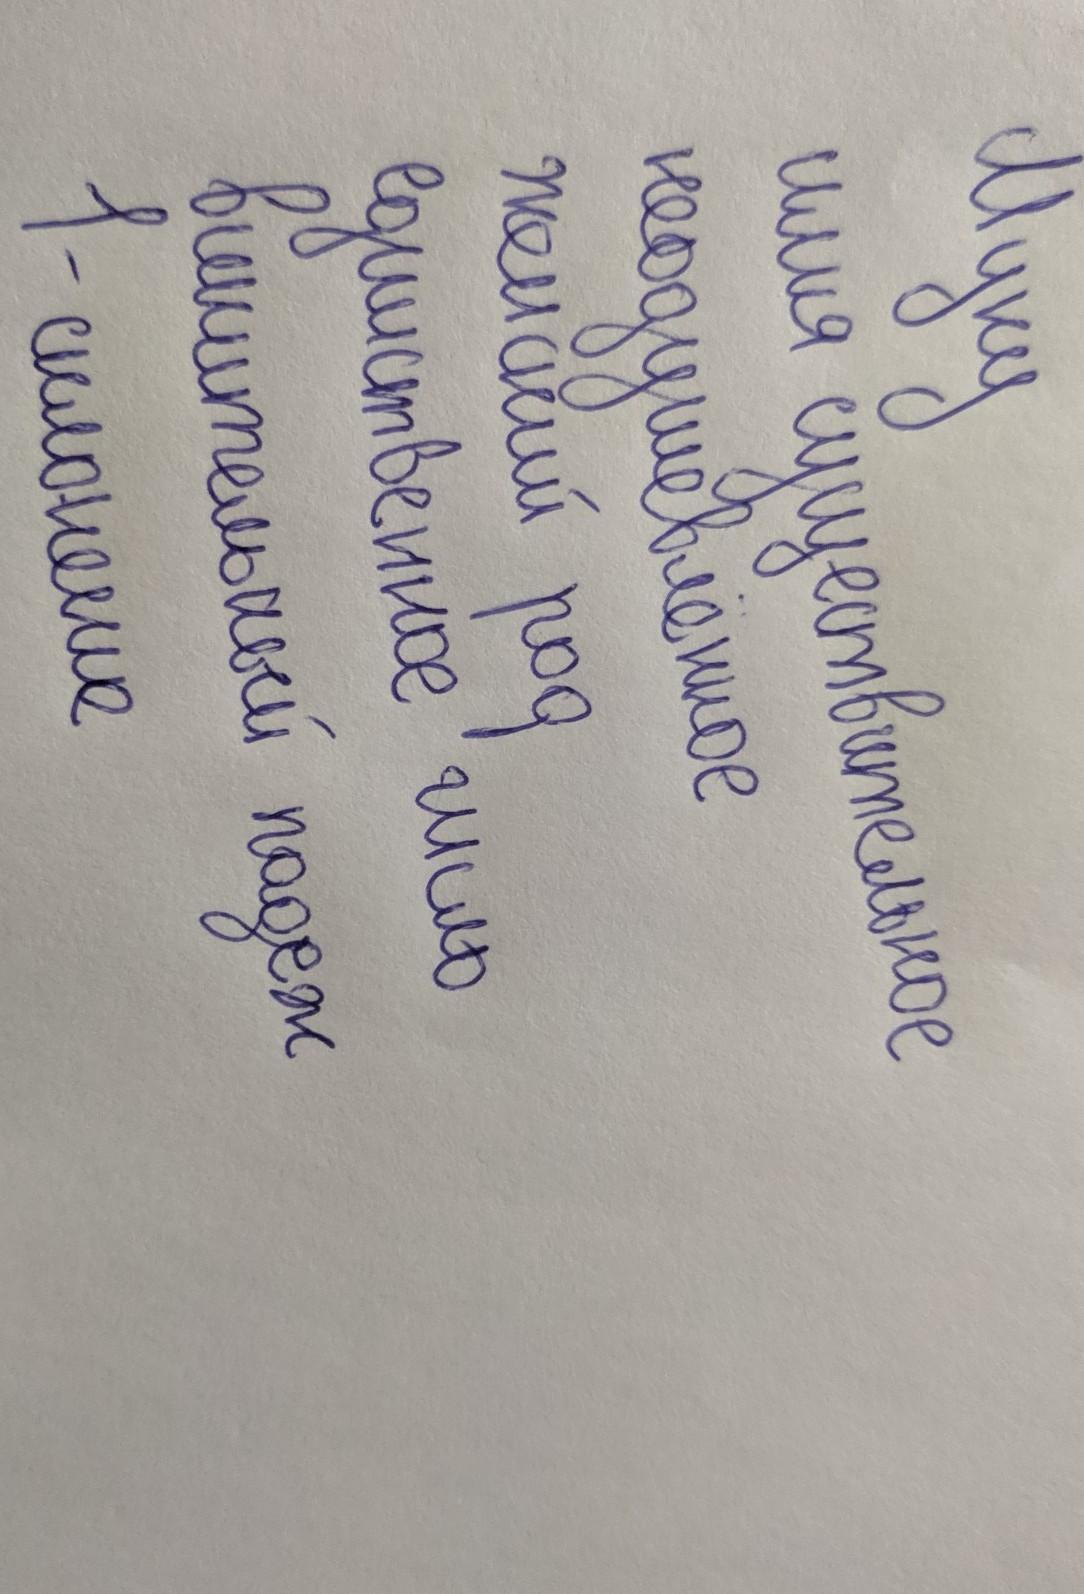 Муку
имя существительное
неодушевлённое
женский род
единственное число
винительный падеж
1-склонение